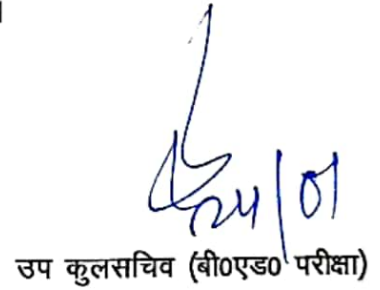 24/01
उप कुलसचिव (बी0एड0 परीक्षा)